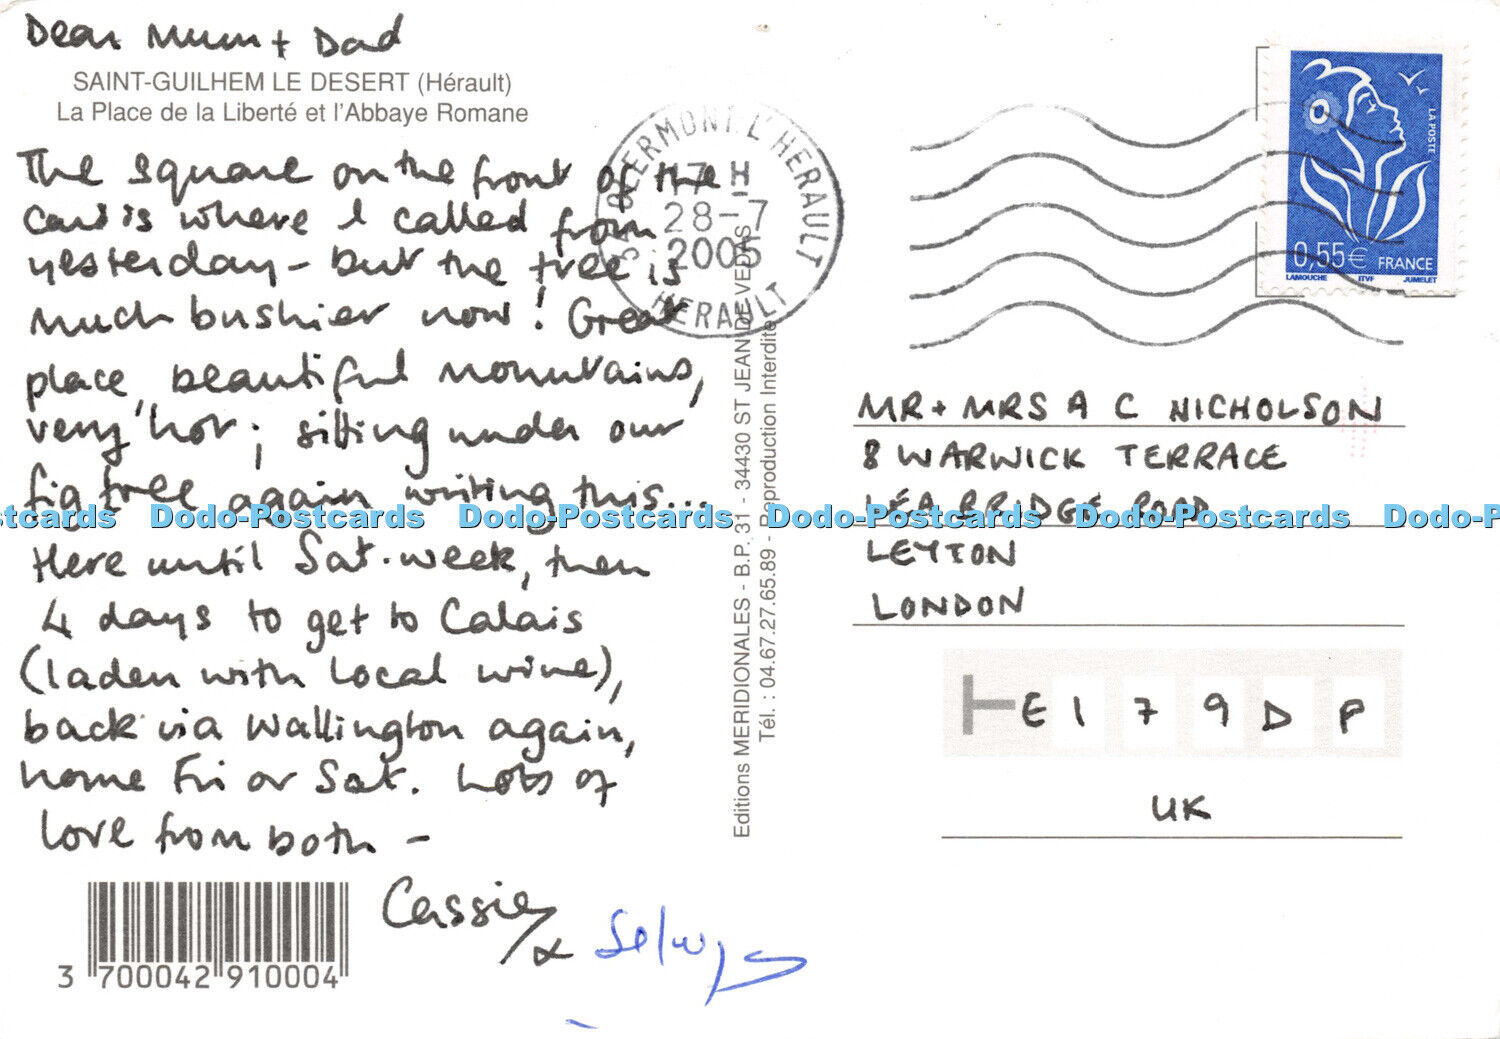 Dear Mum + Dad
SAINT-GUILHEM LE DESERT (Hérault)
La Place de la Liberté et l'Abbaye Romane
The square on the front of the
card is where I called from
yesterday - but the tree is
much bushier now! Great
place, beautiful mountains,
very hot; sitting under our
fig tree again writing this...
Here until Sat. week, then
4 days to get to Calais
(laden with local wine),
back via Wallington again,
home Fri or Sat. Lots of
love from both -
Cassie
& Selwyn
3 700042 910004
Editions MERIDIONALES - B.P. 31 - 34430 ST JEAN DE VEDAS
Tél. : 04.67.27.65.89 - Reproduction Interdite
34 CLERMONT L'HERAULT
17 H
28-7
2005
HERAULT
LA POSTE
0,55€ FRANCE
LAMOUCHE ITVF JUMELET
MR + MRS A C NICHOLSON
8 WARWICK TERRACE
LEA BRIDGE ROAD
LEYTON
LONDON
E 1 7 9 D P
UK
Dodo-Postcards Dodo-Postcards Dodo-Postcards Dodo-Postcards Dodo-P